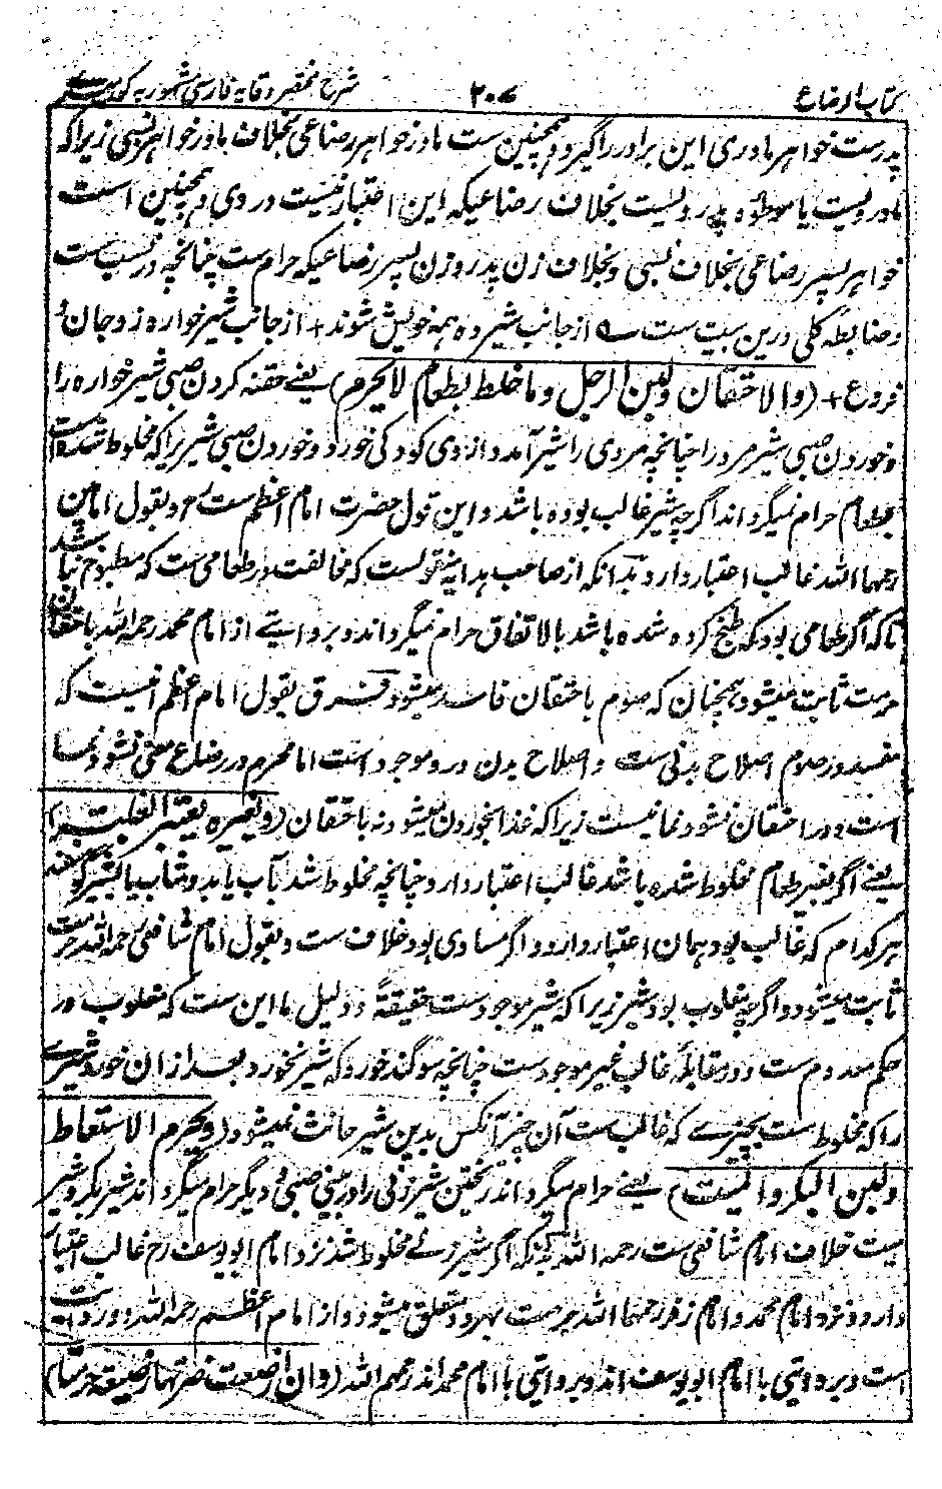 کتاب الرضاع ۲۰۷ شرح مختصر وقایه فارسی مشهور به کور میری
پدرست خواهر مادری این برادر را گیرد و همچنین ست مادر خواهر رضاعی بخلاف مادر خواهر نسبی زیرا که
مادر ویست یا موطؤه پدر ویست بخلاف رضاعیکه این اعتبار نیست در وی و همچنین است
خواهر پسر رضاعی بخلاف نسبی و بخلاف زن پدر و زن پسر رضاعیکه حرام ست چنانچه در نسب ست
و ضابطه کلی درین بیت ست ه از جانب شیر ده همه خویش شوند + از جانب شیرخواره زوجان و
فروع + (والاحتقان ولبن الرجل وما خلط بطعام لا یحرم) یعنے حقنه کردن صبی شیرخواره را
و خوردن صبی شیر مرد را چنانچه مردی را شیر آمد و ازوی کودکی خورد و خوردن صبی شیریرا که مخلوط شده است
بطعام حرام نمیگرداند اگرچه شیر غالب بوده باشد و این قول حضرت امام اعظم ست رح و بقول امامین
رحمهما الله غالب اعتبار دارد بدانکه از صاحب هدایه منقولست که مخالفت در طعامی ست که مطبوخ نباشد
تا که اگر طعامی بود که طبخ کرده شده باشد بالاتفاق حرام نمیگرداند و بروایتے از امام محمد رحمه الله باحتقان
حرمت ثابت میشود همچنان که صوم باحتقان فاسد میشود فرق بقول امام اعظم انیست که
مفسد در صوم اصلاح بدنی ست و اصلاح بدن درو موجود است اما محرم در رضاع معنی نشو و نما
است و در احتقان نشو و نما نیست زیرا که غذا بخوردن میشود نه باحتقان (و بغیره یعتبر الغلبة)
یعنے اگر بغیر طعام مخلوط شده باشد غالب اعتبار دارد چنانچه مخلوط شد بآب یا بدوشاب یا بشیر گوسفند
هر کدام که غالب بود همان اعتبار دارد و اگر مساوی بود خلاف ست و بقول امام شافعی رحمه الله حرمت
ثابت میشود و اگرچه مغلوب بود شیر زیرا که شیر موجود ست حقیقةً و دلیل ما این ست که مغلوب در
حکم معدوم ست و در مقابلۀ غالب غیر موجود ست چنانچه سوگند خورد که شیر نخورد بعد ازان خورد شیرے
را که مخلوط ست بچیزے که غالب ست آن چیز آنکس بدین شیر حانث نمیشود (ویحرم الاستعاط
ولبن البکر والمیت) یعنے حرام میگرداند ریختن شیر زنی را در بینی صبی و دیگر حرام میگرداند شیر بکر و شیر
میت خلاف امام شافعی ست رحمه الله بدانکه اگر شیر زنے مخلوط شد نزد امام ابو یوسف رح غالب اعتبار
دارد و نزد امام محمد و امام زفر رحمهما الله حرمت بهردو متعلق میشود و از امام اعظم رحمه الله دو روایت
است و بروایتی با امام ابو یوسف اند و بروایتی با امام محمد اند رحمهم الله (وان ارضعت ضرتها رضیعة حرمتا)